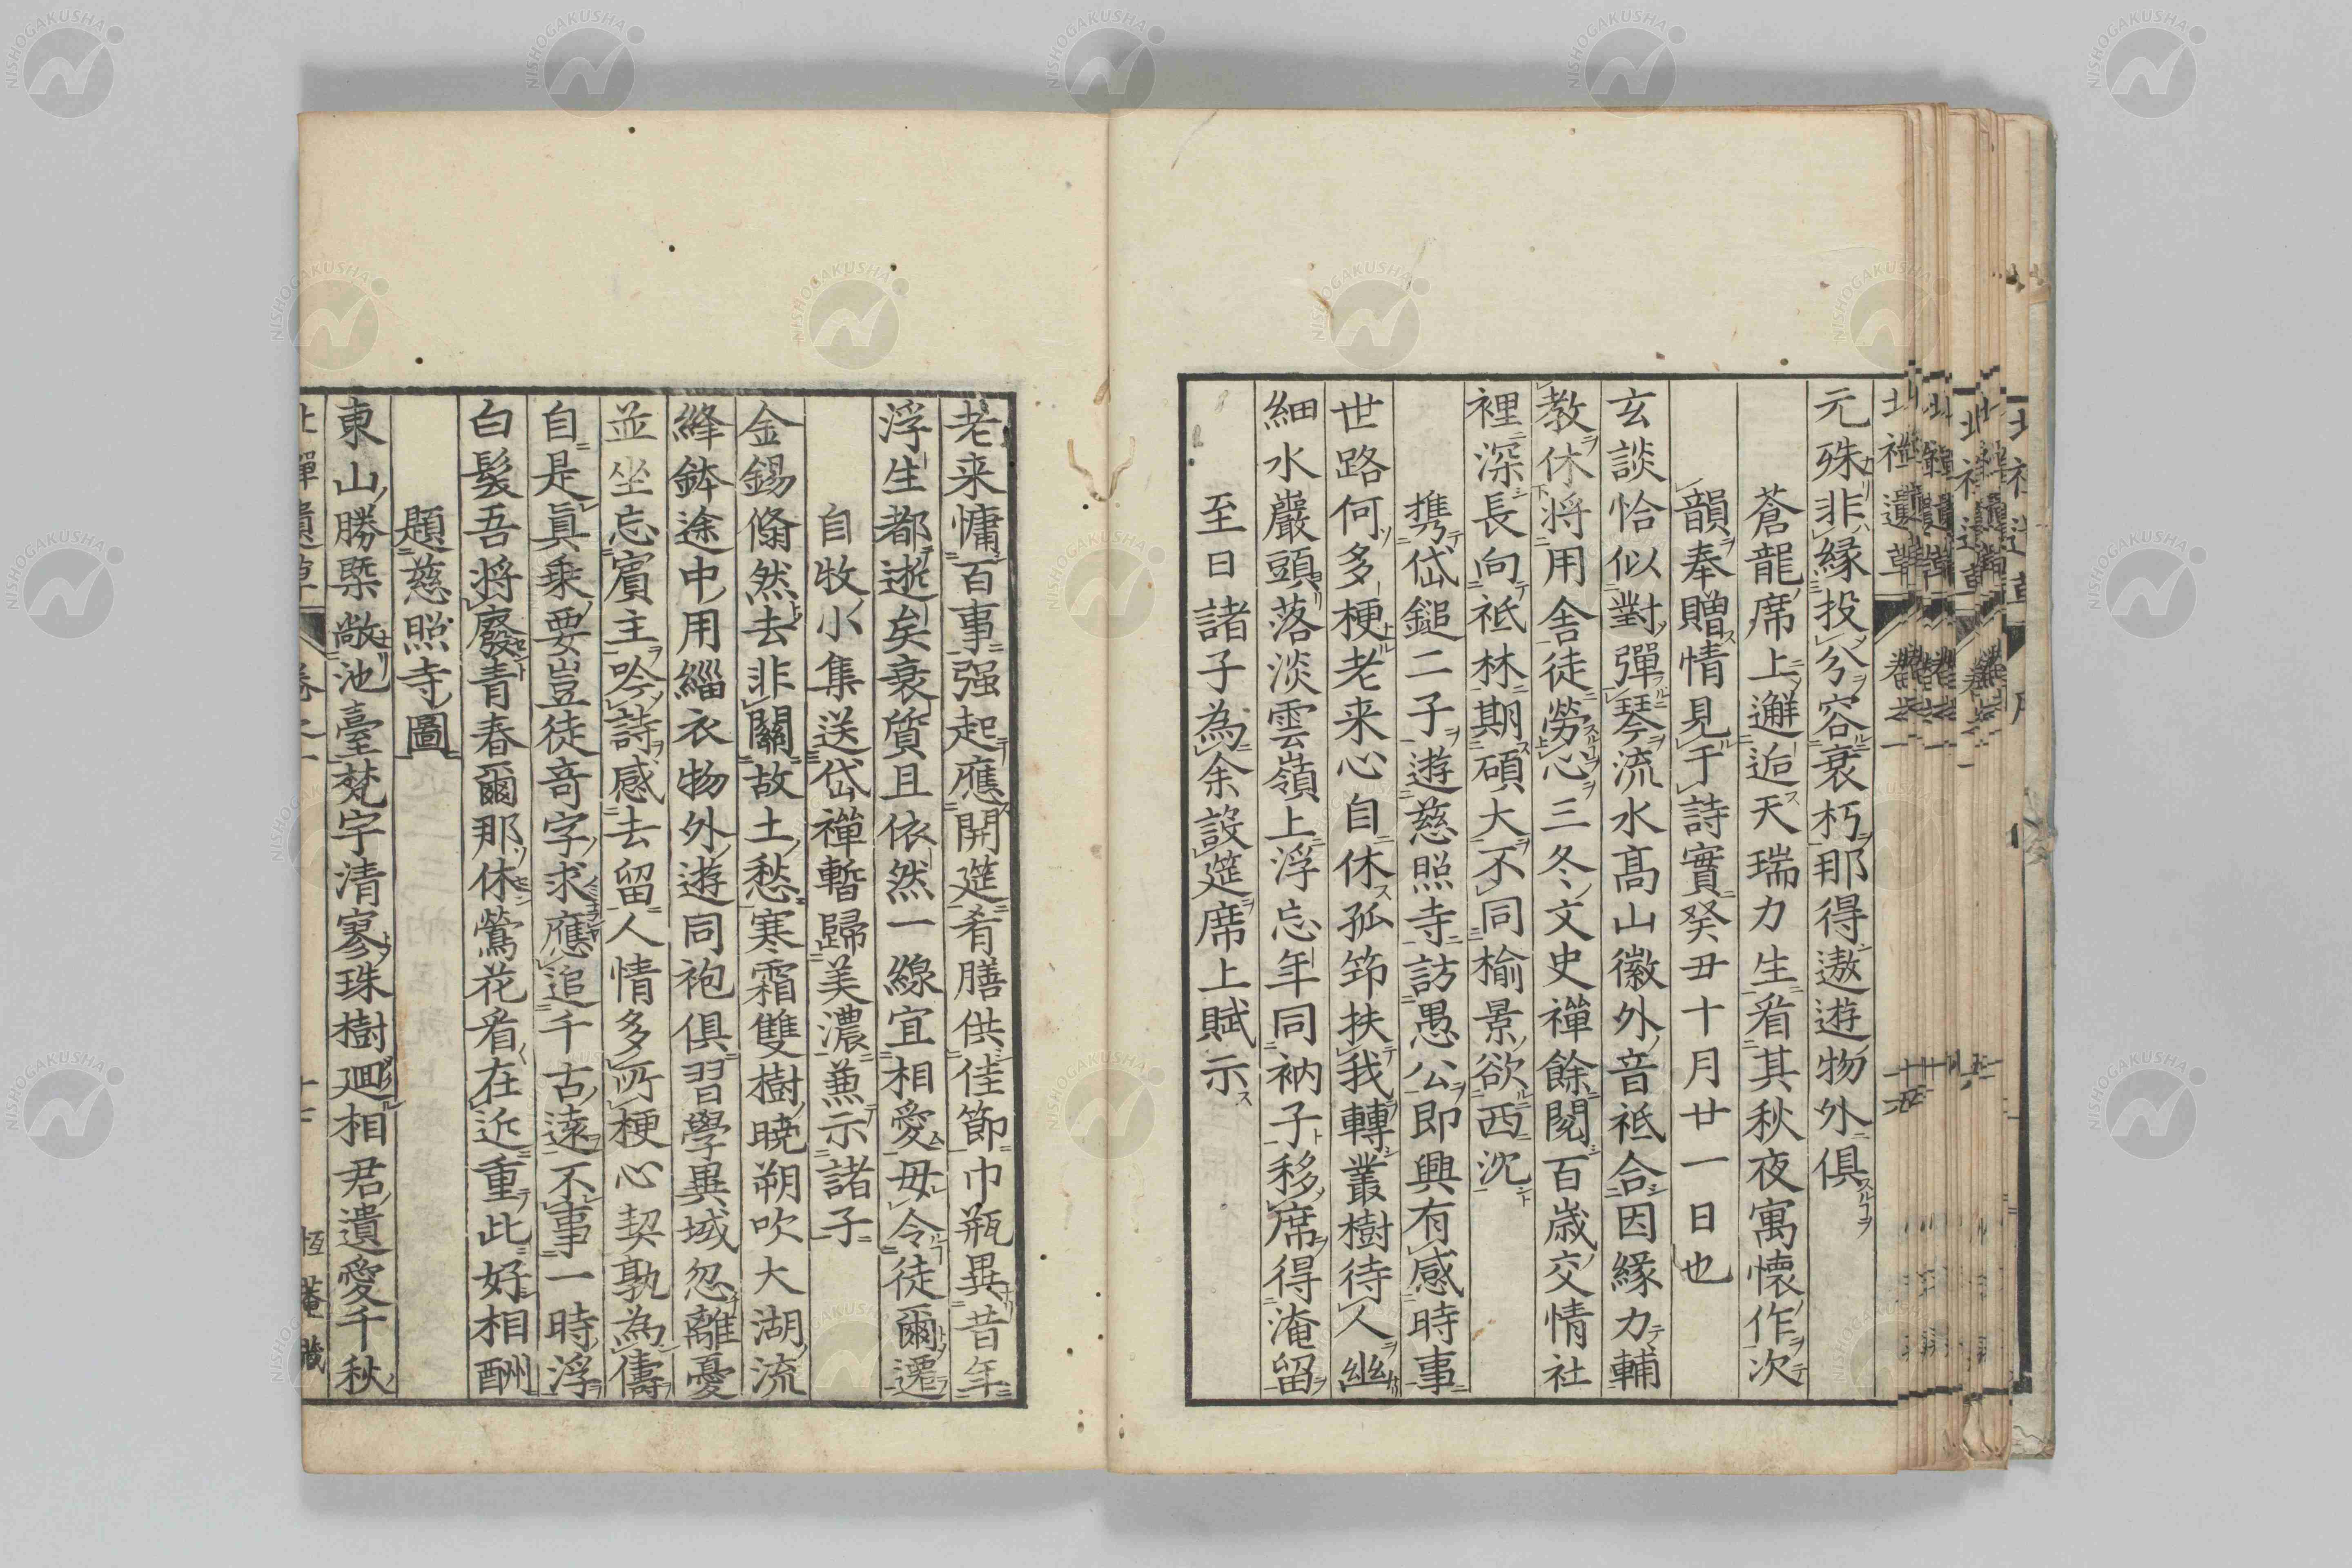 元殊非縁投分容衰朽那得遨遊物外俱
蒼龍席上邂逅天瑞力生看其秋夜寓懐作次
韻奉贈情見于詩實癸丑十月廿一日也
玄談恰似對彈琴流水高山徽外音祗合因縁力輔
教休將用舎徒勞心三冬文史禪餘閲百歳交情社
裡深長向祇林期碩大不同榆景欲西沈
携岱鎚二子遊慈照寺訪愚公即興有感時事
世路何多梗老来心自休孤笻扶我轉叢樹待人幽
細水巖頭落淡雲嶺上浮忘年同衲子移席得淹留
至日諸子為余設筵席上賦示
老来慵百事强起應開筵肴膳供佳節巾瓶異昔年
浮生都逝矣衰質且依然一線宜相愛毋令徒爾遷
自牧小集送岱禪暫歸美濃兼示諸子
金錫翛然去非關故土愁寒霜雙樹曉朔吹大湖流
絳鉢途中用緇衣物外遊同袍俱習學異域忽離憂
並坐忘賓主吟詩感去留人情多所梗心契孰為儔
自是眞乗要豈徒奇字求應追千古遠不事一時浮
白髮吾將廢青春爾那休鶯花看在近重此好相酬
題慈照寺圖
東山勝槩敞池臺梵宇清寥珠樹廻相君遺愛千秋
北禪遺草 卷之一
恆菴藏
NISHOGAKUSHA